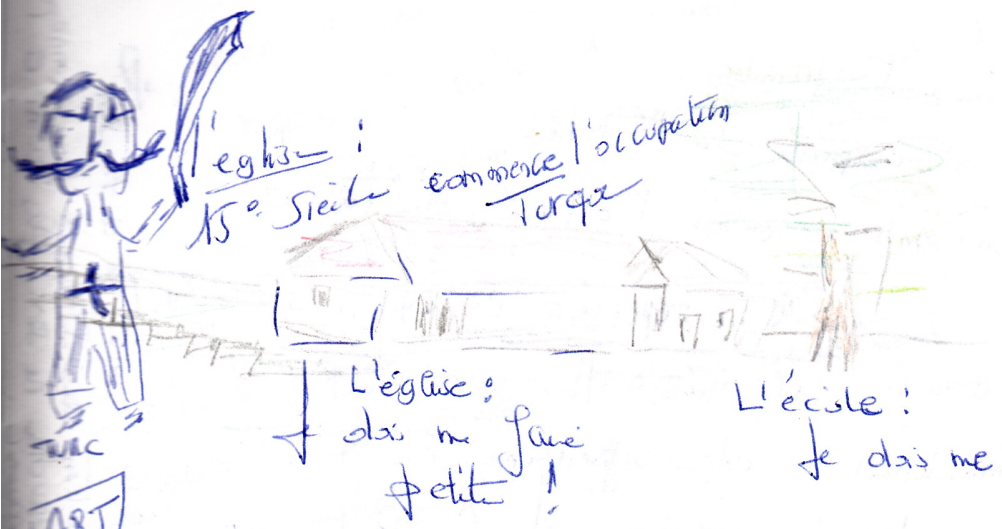 L'église :
15° Siècle commence l'occupation
Turque
L'église :
Je dois me faire
petite !
L'école :
Je dois me
TURC
ART